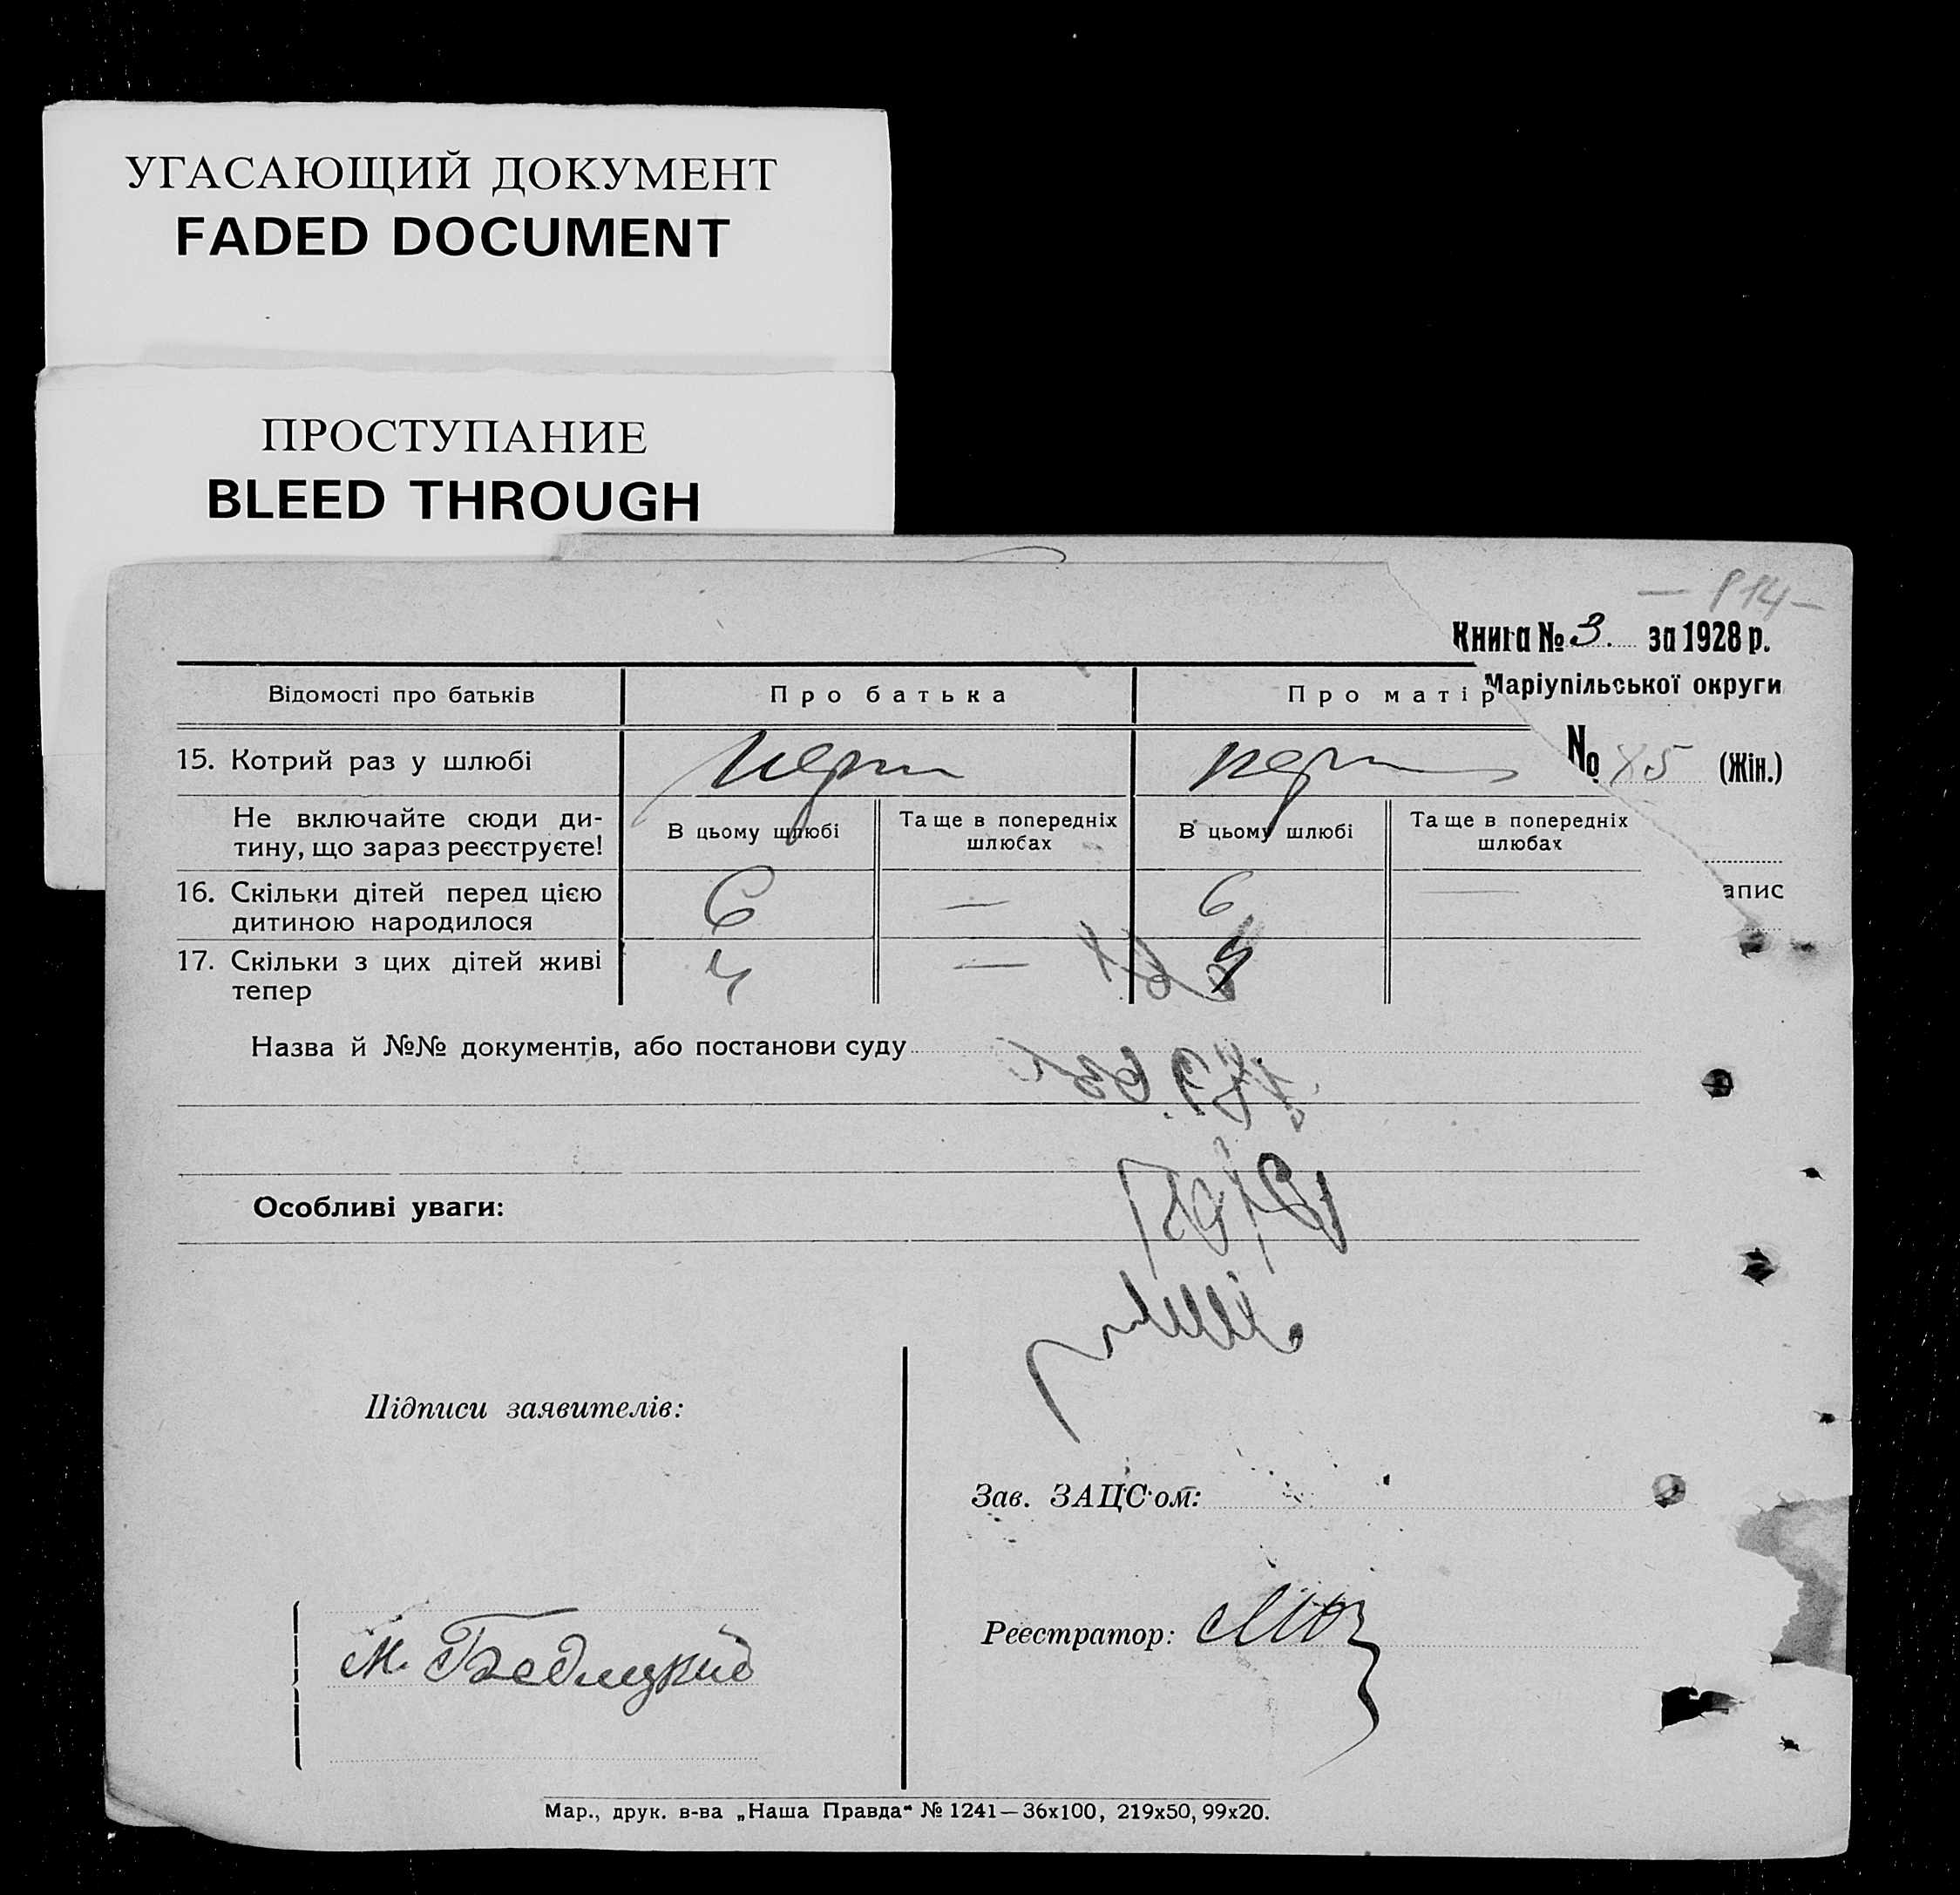 УГАСАЮЩИЙ ДОКУМЕНТ
FADED DOCUMENT
ПРОСТУПАНИЕ
BLEED THROUGH
Книга № 3. за 1928 р.
Маріупільської округи
№ 85 (Жін.)
апис
Відомості про батьків Про батька Про матір
15. Котрий раз у шлюбі перш перш
Не включайте сюди ди-
тину, що зараз реєструєте!
В цьому шлюбі Та ще в попередніх шлюбах В цьому шлюбі Та ще в попередніх шлюбах
16. Скільки дітей перед цією 6 — 6 —
дитиною народилося
17. Скільки з цих дітей живі 4 — 4
тепер
Назва й №№ документів, або постанови суду
Особливі уваги:
Підписи заявителів:
Зав. ЗАЦС'ом:
Реєстратор:
М. Бедлецкий
Мар., друк. в-ва „Наша Правда" № 1241—36х100, 219х50, 99х20.